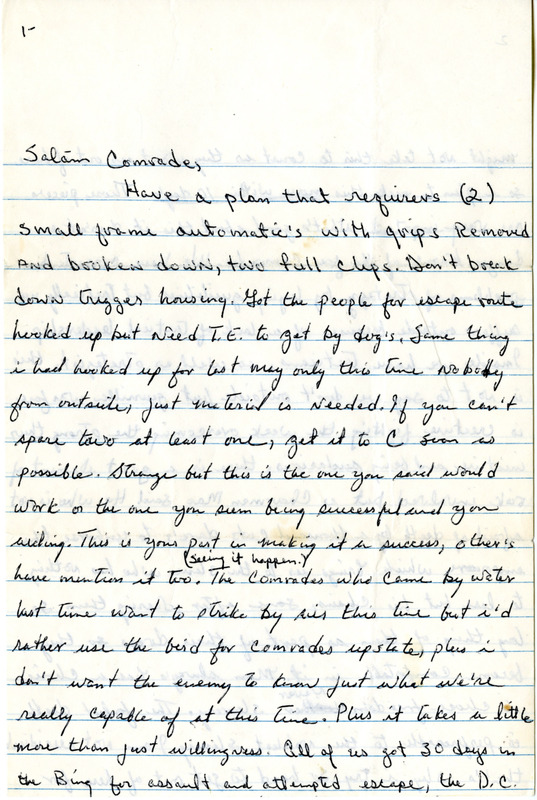 1-
Salām Comrades,
Have a plan that requirers (2)
small frame automatic's with grips Removed
AND broken down, two full clips. Don't break
down trigger housing. Got the people for escape route
hooked up but Need T.E. to get by dog's. Same thing
i had hooked up for last may only this time Nobody
from outside, just material is Needed. If you can't
spare two at least one, get it to C soon as
possible. Strange but this is the one you said would
work or the one you seen being successful and you
aiding. This is your part in making it a success, other's
(seeing it happen.)
have mention it too. The Comrades who came by water
last time want to strike by air this time but i'd
rather use the bird for comrades upstate, plus i
don't want the enemy to know just what we're
really capable of at this time. Plus it takes a little
more than just willingness. All of us got 30 days in
the Bing for assault and attempted escape, the D.C.